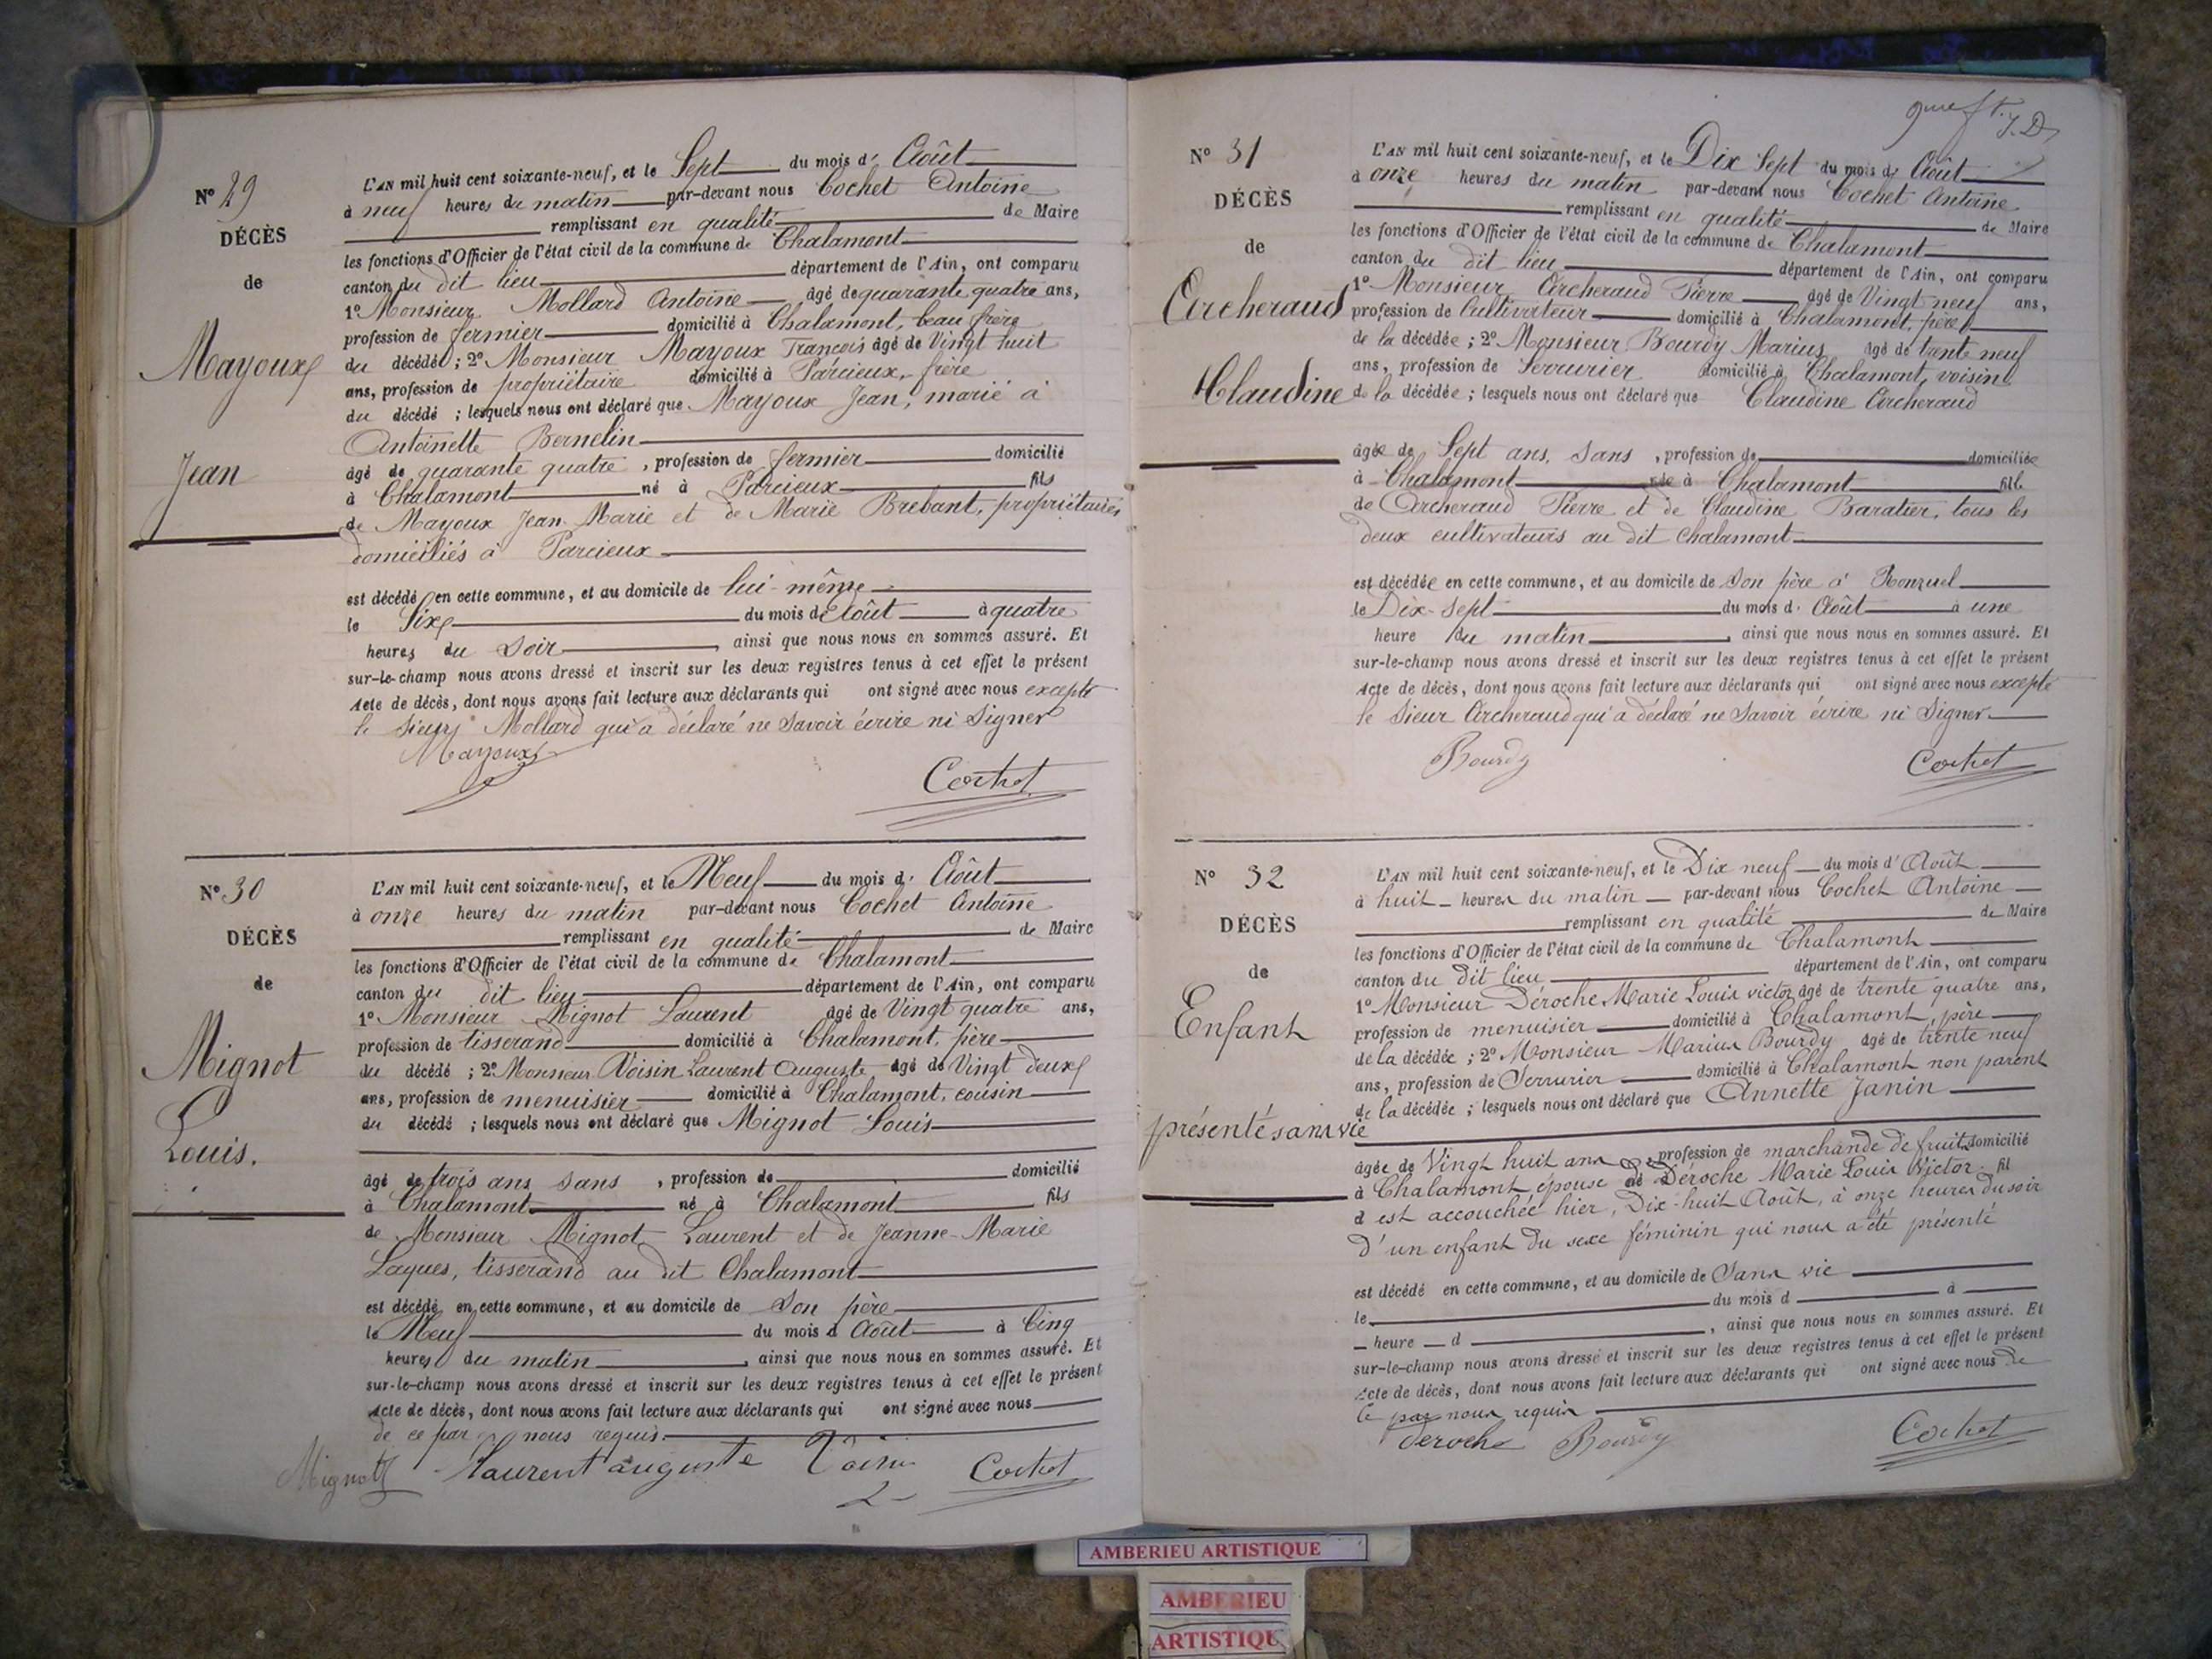 N° 29
DÉCÈS
de
Mayoux
Jean
L'AN mil huit cent soixante-neuf, et le Sept du mois d' Août
à neuf heures du matin par-devant nous Cochet Antoine
remplissant en qualité de Maire
les fonctions d'Officier de l'état civil de la commune de Chalamont
canton du dit lieu département de l'Ain, ont comparu
1° Monsieur Mollard Antoine âgé de quarante quatre ans,
profession de fermier domicilié à Chalamont, beau frère
du décédé ; 2° Monsieur Mayoux François âgé de Vingt huit
ans, profession de propriétaire domicilié à Parcieux, frère
du décédé ; lesquels nous ont déclaré que Mayoux Jean, marié à
Antoinette Bernelin
âgé de quarante quatre , profession de fermier domicilié
à Chalamont né à Parcieux fils
de Mayoux Jean Marie et de Marie Brebant, propriétaires
domiciliés à Parcieux
est décédé en cette commune, et au domicile de lui-même
le Six du mois de Août à quatre
heures du soir , ainsi que nous nous en sommes assuré. Et
sur-le-champ nous avons dressé et inscrit sur les deux registres tenus à cet effet le présent
Acte de décès, dont nous avons fait lecture aux déclarants qui ont signé avec nous excepté
le sieur Mollard qui a déclaré ne savoir écrire ni signer
Mayoux
Cochet
N° 30
DÉCÈS
de
Mignot
Louis.
L'AN mil huit cent soixante-neuf, et le Neuf du mois d' Août
à onze heures du matin par-devant nous Cochet Antoine
remplissant en qualité de Maire
les fonctions d'Officier de l'état civil de la commune de Chalamont
canton du dit lieu département de l'Ain, ont comparu
1° Monsieur Mignot Laurent âgé de Vingt quatre ans,
profession de tisserand domicilié à Chalamont, père
du décédé ; 2° Monsieur Voisin Laurent Auguste âgé de Vingt deux
ans, profession de menuisier domicilié à Chalamont, cousin
du décédé ; lesquels nous ont déclaré que Mignot Louis
âgé de trois ans sans , profession de domicilié
à Chalamont né à Chalamont fils
de Monsieur Mignot Laurent et de Jeanne-Marie
Laques, tisserand au dit Chalamont
est décédé en cette commune, et au domicile de Son père
le Neuf du mois d Août à Cinq
heures du matin , ainsi que nous nous en sommes assuré. Et
sur-le-champ nous avons dressé et inscrit sur les deux registres tenus à cet effet le présent
Acte de décès, dont nous avons fait lecture aux déclarants qui ont signé avec nous
de ce par nous requis.
Mignot Laurent auguste Voisin Cochet
N° 31
DÉCÈS
de
Archeraud
Claudine
L'AN mil huit cent soixante-neuf, et le Dix Sept du mois d' Août
à onze heures du matin par-devant nous Cochet Antoine
remplissant en qualité de Maire
les fonctions d'Officier de l'état civil de la commune de Chalamont
canton du dit lieu département de l'Ain, ont comparu
1° Monsieur Archeraud Pierre âgé de Vingt neuf ans,
profession de Cultivateur domicilié à Chalamont, père
de la décédée ; 2° Monsieur Bourdy Marius âgé de trente neuf
ans, profession de Serrurier domicilié à Chalamont, voisin
de la décédée ; lesquels nous ont déclaré que Claudine Archeraud
âgée de Sept ans, sans , profession de domiciliée
à Chalamont née à Chalamont fille
de Archeraud Pierre et de Claudine Baratier, tous les
deux cultivateurs au dit Chalamont
est décédée en cette commune, et au domicile de Son père à Ronzuel
le Dix-Sept du mois d' Août à une
heure du matin , ainsi que nous nous en sommes assuré. Et
sur-le-champ nous avons dressé et inscrit sur les deux registres tenus à cet effet le présent
Acte de décès, dont nous avons fait lecture aux déclarants qui ont signé avec nous excepté
le sieur Archeraud qui a déclaré ne savoir écrire ni signer.
Bourdy
Cochet
N° 32
DÉCÈS
de
Enfant
présenté sans vie
L'AN mil huit cent soixante-neuf, et le Dix neuf du mois d' Août
à huit heures du matin par-devant nous Cochet Antoine
remplissant en qualité de Maire
les fonctions d'Officier de l'état civil de la commune de Chalamont
canton du dit lieu département de l'Ain, ont comparu
1° Monsieur Déroche Marie Louis victor âgé de trente quatre ans,
profession de menuisier domicilié à Chalamont, père
de la décédée ; 2° Monsieur Marius Bourdy âgé de trente neuf
ans, profession de Serrurier domicilié à Chalamont non parent
de la décédée ; lesquels nous ont déclaré que Annette Janin
âgée de Vingt huit ans , profession de marchande de fruits domicilié
à Chalamont épouse de Déroche Marie Louis Victor fil
d est accouchée hier, Dix-huit Août, à onze heures du soir
D'un enfant du sexe féminin qui nous a été présenté
est décédé en cette commune, et au domicile de Sans vie
le du mois d à
heure d , ainsi que nous nous en sommes assuré. Et
sur-le-champ nous avons dressé et inscrit sur les deux registres tenus à cet effet le présent
Acte de décès, dont nous avons fait lecture aux déclarants qui ont signé avec nous de
ce par nous requis
Deroche Bourdy Cochet
AMBERIEU ARTISTIQUE
AMBERIEU
ARTISTIQUE